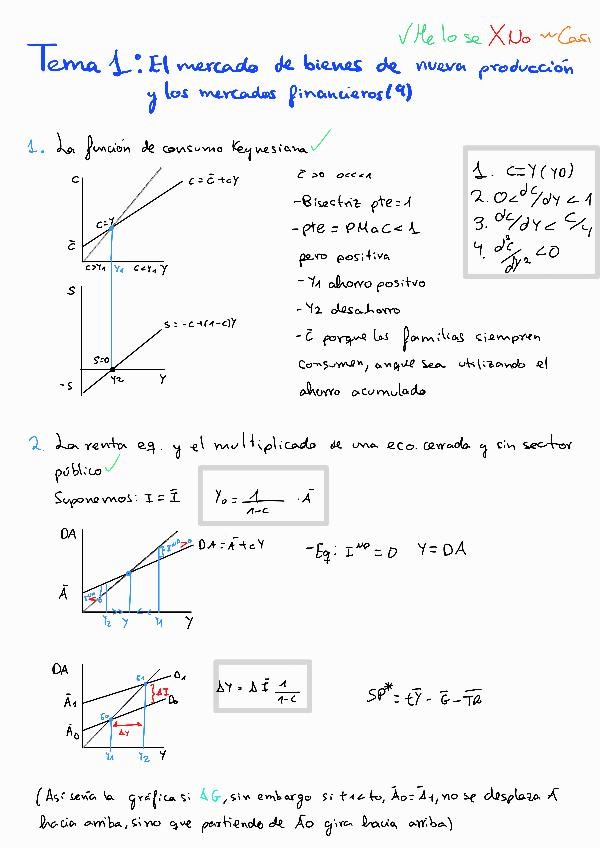 ✓Me lo se XNo ~Casi
Tema 1: El mercado de bienes de nueva producción
y los mercados financieros(9)
1. La función de consumo Keynesiana ✓
C
C = C̄ + cY
C=Y
C̄
C>Y1 Y1 C<Y1 Y
S
S = -C+(1-c)Y
S=0
-S
Y2 Y
C̄ >0 0<c<1
-Bisectriz pte=1
-pte = PMaC < 1
pero positiva
-Y1 ahorro positvo
-Y2 desahorro
-C̄ porque las familias siempren
consumen, anque sea utilizando el
ahorro acumulado
1. C=Y(Y0)
2. 0<dc/dY<1
3. dc/dY < C/Y
4. d²c/dY² <0
2. La renta eq. y el multiplicado de una eco. cerrada y sin sector
público ✓
Suponemos: I = Ī
Y₀ = 1/1-c · Ā
DA
I ᴺᴰ > 0
DA = Ā + cY
Ā
Y2 Y Y1 Y
-Eq: I ᴺᴰ = 0 Y = DA
DA
D1
D0
Ā1
E1
ΔI
Ā0
E0
ΔY
Y1 Y2 Y
ΔY = Δ Ī 1/1-c
SP* = tȲ - Ḡ - T̄R̄
(Así sería la gráfica si ΔG, sin embargo si t1<t0, Ā0=Ā1, no se desplaza Ā
hacia arriba, sino que partiendo de Ā0 gira hacia arriba)